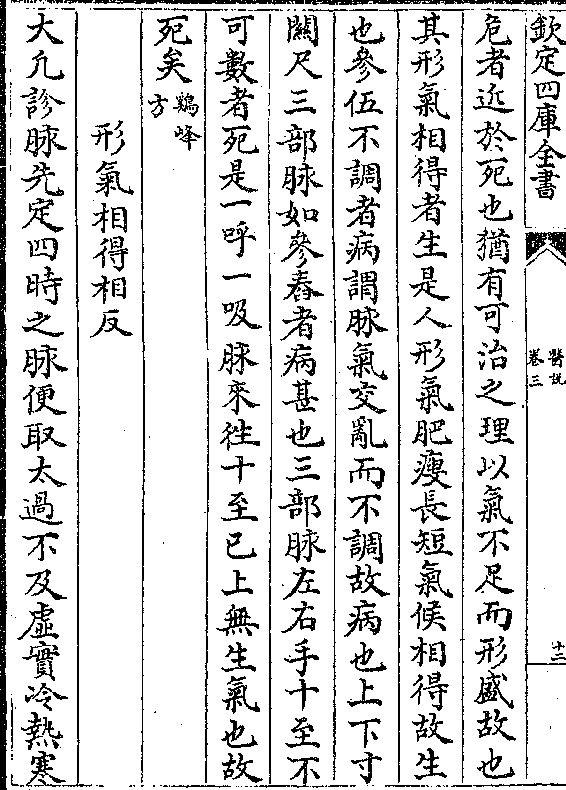 欽定四庫全書
醫説
卷三
十二
危者近於死也猶有可治之理以氣不足而形盛故也
其形氣相得者生是人形氣肥瘦長短氣候相得故生
也參伍不調者病謂脉氣交亂而不調故病也上下寸
關尺三部脉如參舂者病甚也三部脉左右手十至不
可數者死是一呼一吸脉來徃十至已上無生氣也故
死矣
鷄峰
方
形氣相得相反
大凢診脉先定四時之脉便取太過不及虛實冷熱寒